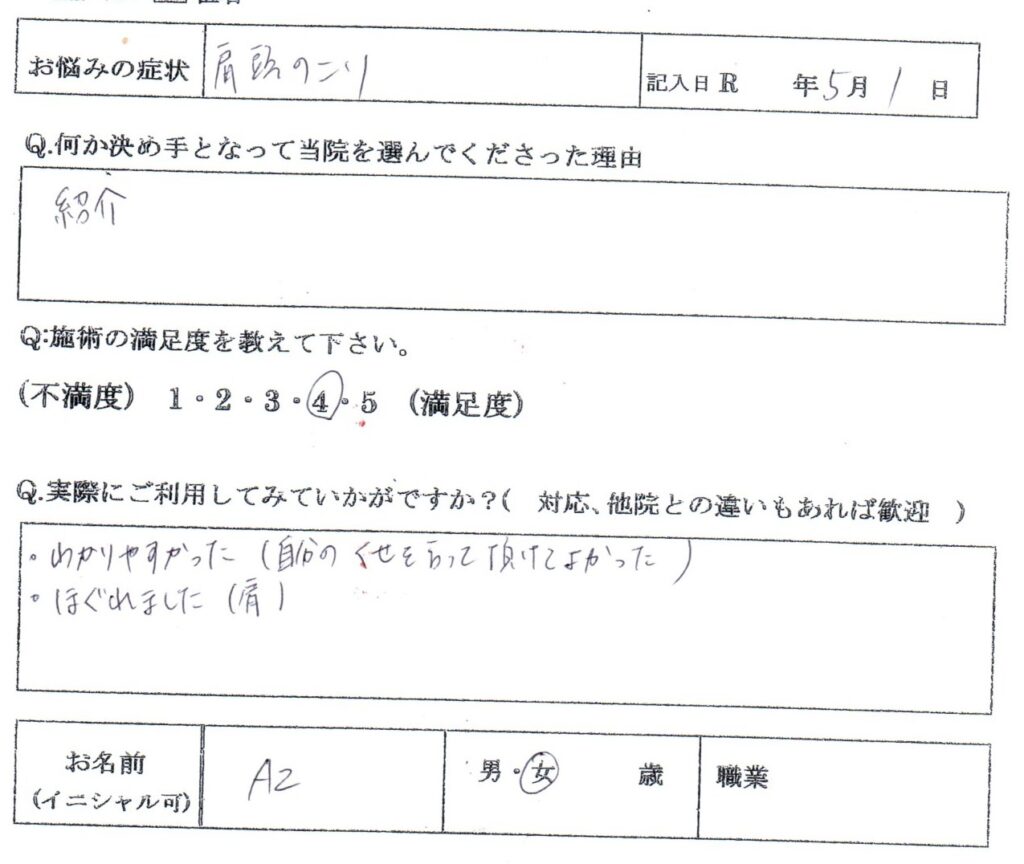 お悩みの症状 肩頭のこり 記入日 R 年 5月 1 日
Q.何か決め手となって当院を選んでくださった理由
紹介
Q:施術の満足度を教えて下さい。
(不満度) 1・2・3・4・5 (満足度)
Q.実際にご利用してみていかがですか?( 対応、他院との違いもあれば歓迎 )
・わかりやすかった (自分のくせを言って頂けてよかった)
・ほぐれました (肩)
お名前 AZ 男・女 歳 職業
(イニシャル可)